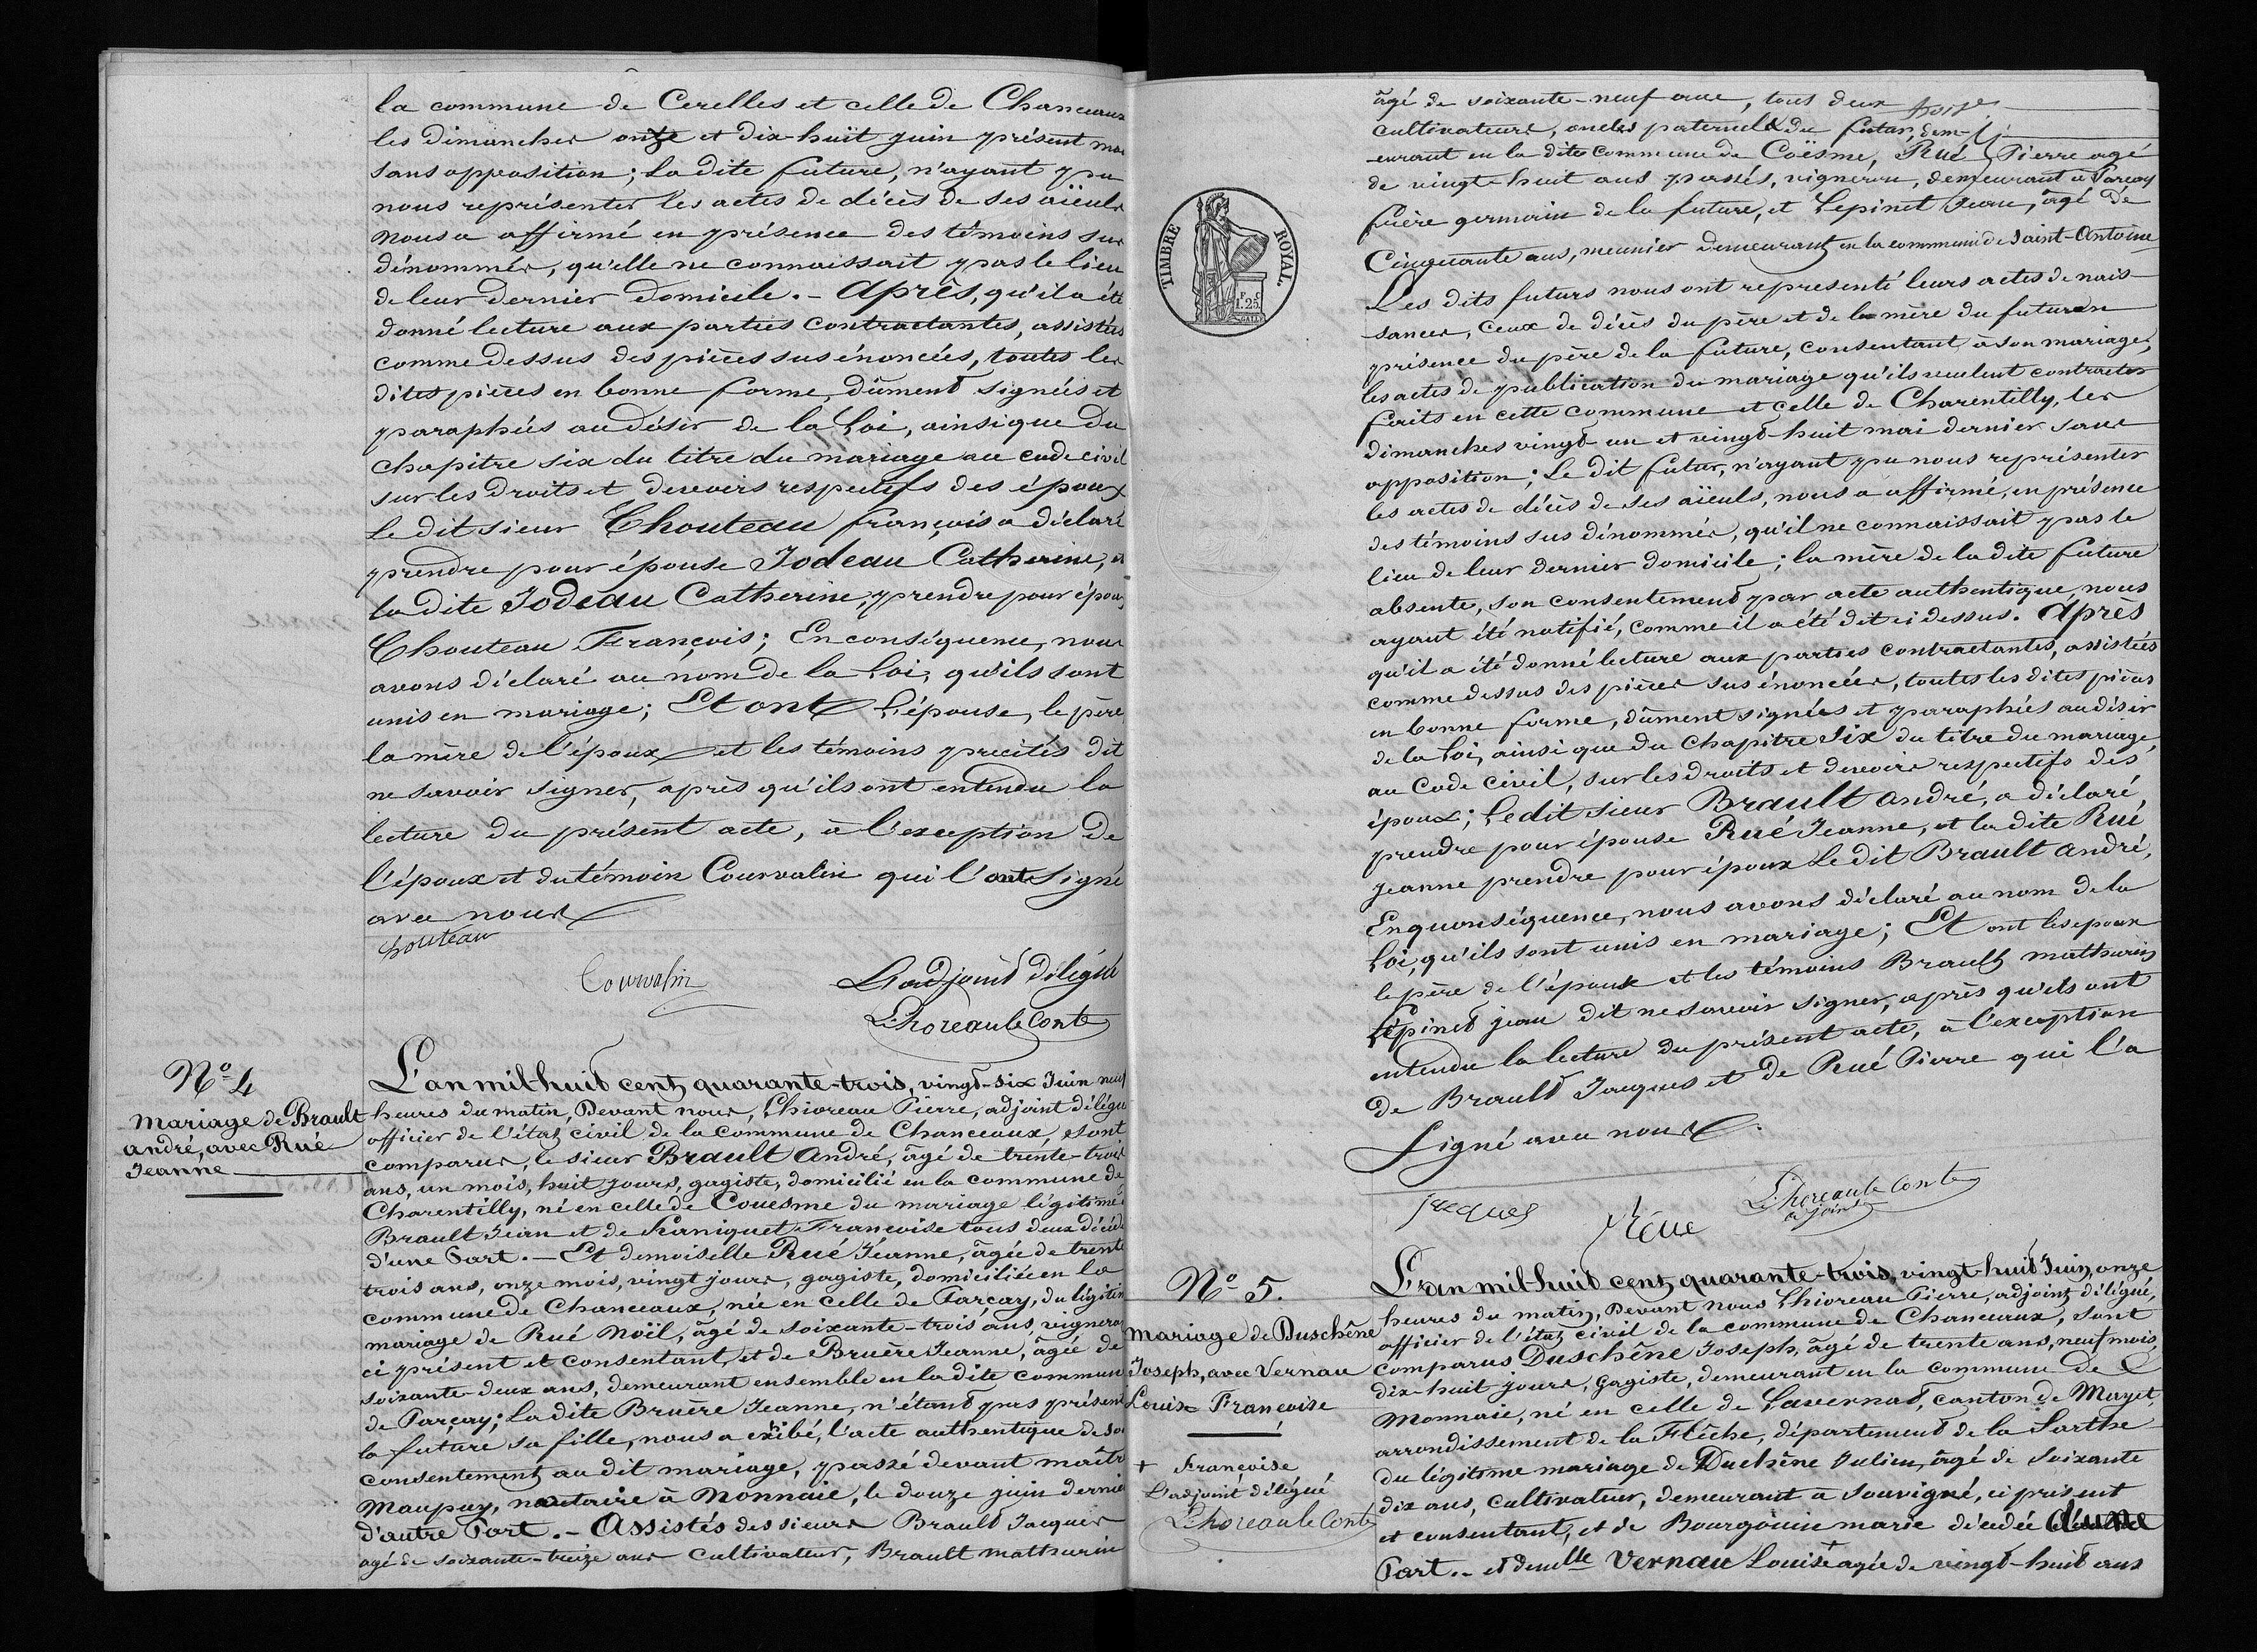 la commune de Cerelles et celle de Chanceaux
les dimanches onze et dix-huit juin présent moi
sans opposition; La dite future, n'ayant pu
nous représenter les actes de décès de ses aïeuls
nous a affirmé en présence des témoins sus
dénommés, qu'elle ne connaissait pas le lieu
de leur dernier domicile. - Après, qu'il a été
donné lecture aux parties contractantes, assistées
comme dessus des pièces sus énoncées, toutes les
dites pièces en bonne forme, dûment signées et
paraphées au désir de la Loi, ainsi que du
chapitre six du titre du mariage au code civil
sur les droits et devoirs respectifs des époux
Le dit sieur Chouteau françois a déclaré
prendre pour épouse Jodeau Catherine, et
la dite Jodeau Catherine, prendre pour époux
Chouteau François; En conséquence, nous
avons déclaré au nom de la Loi, qu'ils sont
unis en mariage; Et ont L'épouse, le père
la mère de l'époux et les témoins précités dit
ne savoir signer, après qu'ils ont entendu la
lecture du présent acte, à l'exception de
l'époux et du témoin Courvalin qui l'ont signé
avec nous
Chouteau
Courvalin
L'adjoint délégué
Lhoreau le Conte
N° 4
Mariage de Brault
andré, avec Rué
Jeanne
L'an mil huit cent quarante-trois, vingt-six Juin neuf
heures du matin, Devant nous, Lhioreau Pierre, adjoint délégué
officier de l'état civil de la commune de Chanceaux, sont
comparus, le sieur Brault André, âgé de trente-trois
ans, un mois, huit jours, gagiste, domicilié en la commune de
Charentilly, né en celle de Couesme du mariage légitime
Brault Jean et de Françoise tous deux décédés
d'une Part. - Et demoiselle Rué Jéanne, âgée de trente
trois ans, onze mois, vingt jours, gagiste, domiciliée en la
commune de Chanceaux, née en celle de Parçay, du légitim
mariage de Rué Noël, âgé de soixante-trois ans, vigneron
ci présent et consentant, et de Bruère Jeanne, âgée de
soixante-deux ans, demeurant ensemble en la dite commune
de Parçay; La dite Bruère Jeanne, n'étant pas présente
la future sa fille, nous a exibé, l'acte authentique de son
consentement au dit mariage, passé devant maître
Maupuy, nautaire à Monnaie, le douze juin dernier
d'autre Part. - Assistés des sieurs Brault Jacques
agé de soixante-treize ans cultivateur, Brault mathurin
TIMBRE ROYAL.
F. C.
1.25
âgé de soixante-neuf ans, tous deux
cultivateurs, oncles paternels du futur, dem-
-eurant en la dite commune de Coësme, Rué Pierre agé
de vingt-huit ans passés, vigneron, demeurant à Parcay
frère germain de la future, et Lepinet Jean, âgé de
Cinquante ans, meunier demeurant en la commune de Saint-Antoine
Les dits futurs nous ont representé leurs actes de nais-
-sances, ceux de décès du père et de la mère du futur en
présence du père de la future, consentant à son mariage,
les actes de publication du mariage qu'ils veulent contracter
faits en cette commune et celle de Charentilly, les
dimanches vingt un et vingt-huit mai dernier sans
opposition; Le dit futur, n'ayant pu nous représenter
les actes de décès de ses aïeuls, nous a affirmé, en présence
des témoins sus dénommés, qu'il ne connaissait pas le
lieu de leur dernier domicile; la mère de la dite future
absente, son consentement par acte authentique, nous
ayant été notifié, comme il a été dit ci dessus. Après
qu'il a été donné lecture aux parties contractantes, assistées
comme dessus des pièces sus énoncées, toutes les dites pièces
en bonne forme, dûment signées et paraphées au désir
de la Loi, ainsi que du Chapitre Six du titre du mariage,
au Code civil, sur les droits et devoirs respectifs des
époux; Le dit sieur Brault andré, a déclaré,
prendre pour épouse Rué Jeanne, et la dite Rué
Jeanne prendre pour époux Le dit Brault andré,
En quonséquence, nous avons déclaré au nom de la
Loi, qu'ils sont unis en mariage; Et ont les epoux
le père de l'épouse et les témoins Brault mathurin
Lépinet jean dit ne savoir signer, après qu'ils ont
entendu la lecture du présent acte, à l'exception
de Brault Jacques et de Rué Pierre qui l'a
Signé avec nous.
Jacques
Rue
Lhoreau le Conte
adjoint
N° 5.
Mariage de Duschêne
Joseph, avec Vernau
Louise Françoise
+ Françoise
L'adjoint délégué
Lhoreau le Conte
L'an mil-huit cent quarante-trois, vingt-huit Juin, onze
heures du matin, Devant nous Lhioreau Pierre, adjoint délégué,
officier de l'état civil de la commune de Chanceaux, sont
comparus Duschêne Joseph, âgé de trente ans, neuf mois,
dix-huit jours, gagiste, demeurant en la commune de
Monnaie, né en celle de Lavernat, canton de Mayet,
arrondissement de la Flêche, département de la Sarthe
du légitime mariage de Duchêne Julien, âgé de Soixante
dix ans, Cultivateur, demeurant à Souvigné, ci présent
et consentant, et de Bourgouin marie décédée d'une
Part. - et demlle Vernau Louise + agée de vingt-huit ans